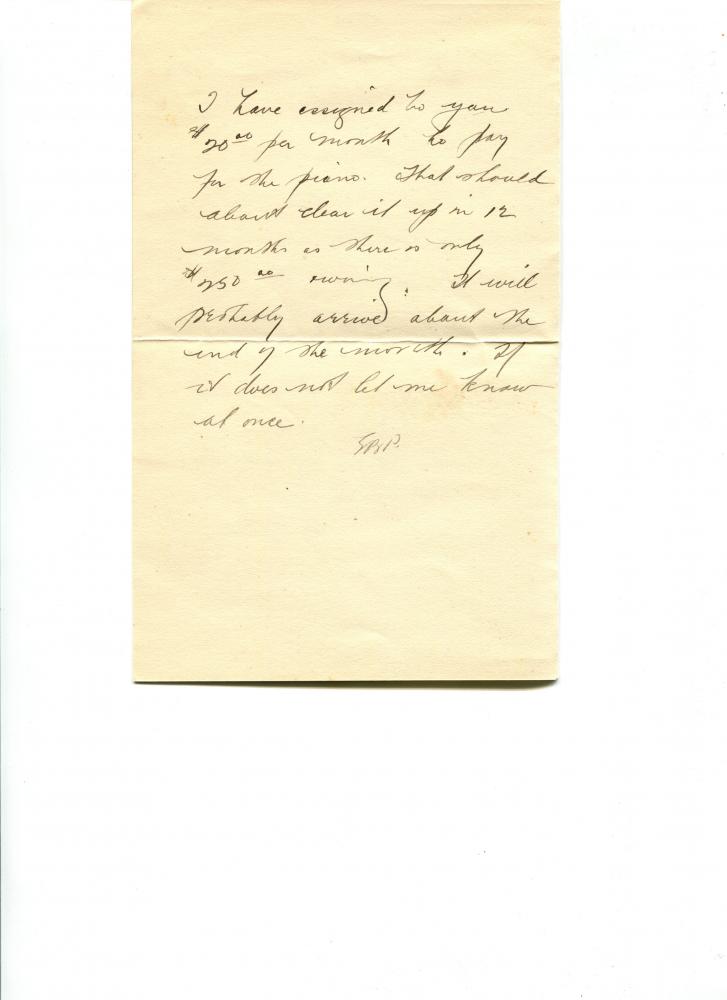 I have assigned to you
$20.00 per month to pay
for the piano. That should
about clear it up in 12
months as there is only
$250.00 owing. It will
probably arrive about the
end of the month. If
it does not let me know
at once.